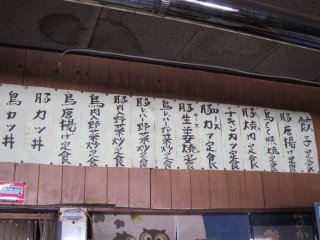 餃子定食
豚唐揚げ定食
鳥てり焼定食
豚焼肉定食
チキンカツ定食
ロース
豚カツ定食
豚生姜焼定食
鳥レバー野菜炒め定食
豚レバー野菜炒め定食
豚肉野菜炒め定食
鳥肉野菜炒め定食
鳥唐揚げ定食
豚カツ丼
鳥カツ丼